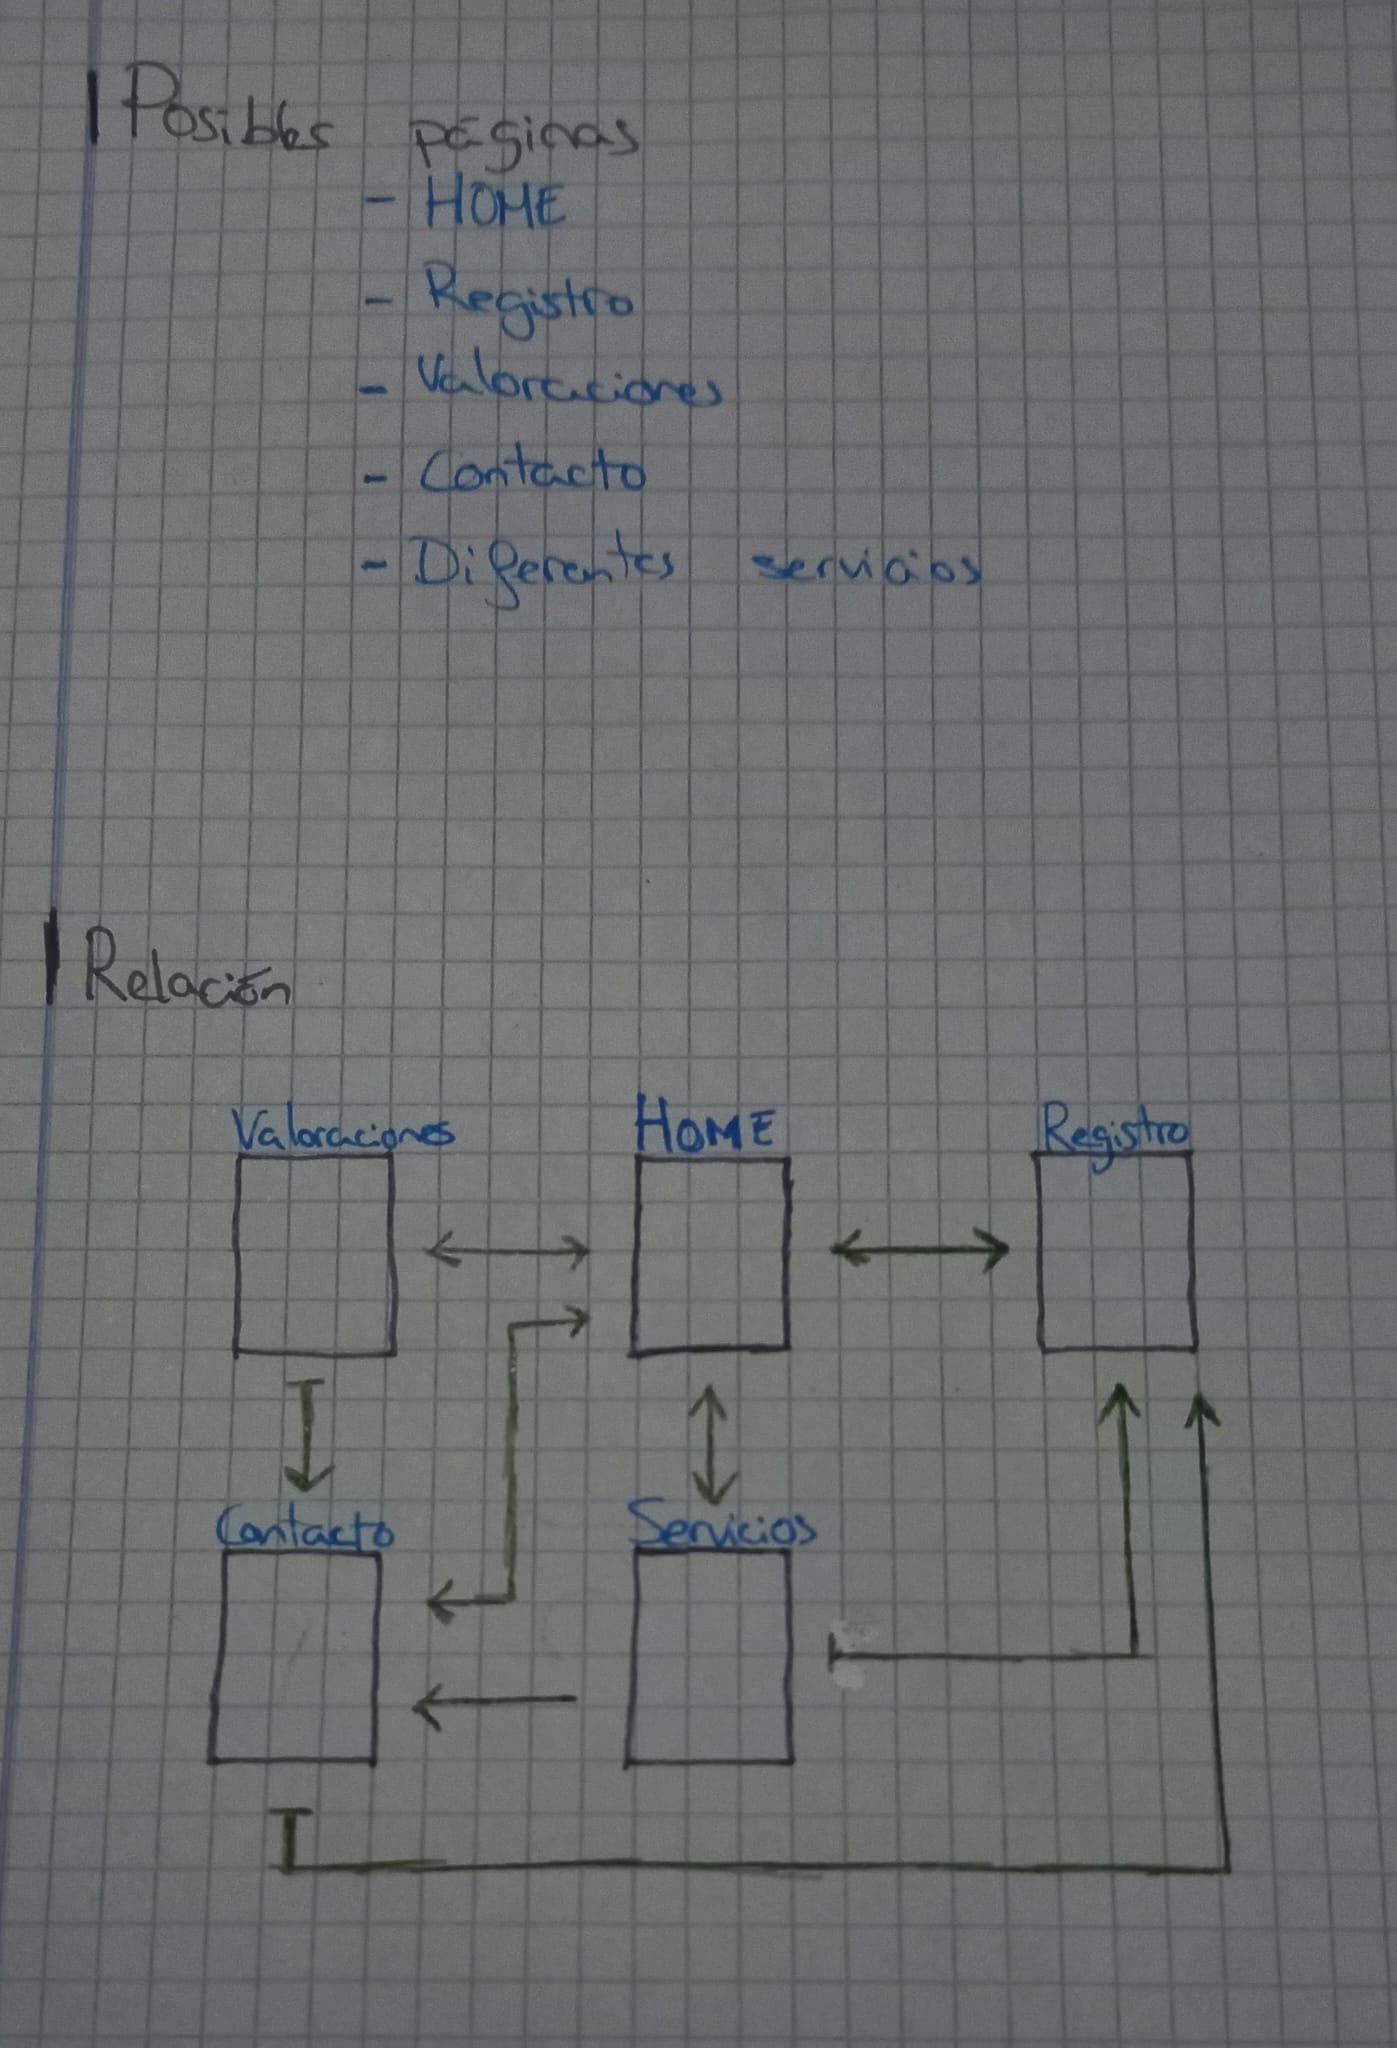 Posibles páginas
- HOME
- Registro
- Valoraciones
- Contacto
- Diferentes servicios
Relación
Valoraciones HOME Registro
Contacto Servicios